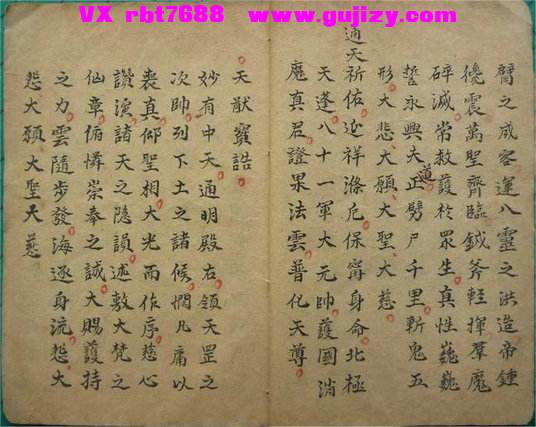 VX rbt7688 www.gujizy.com
臂之咸客運八靈之洪造帝鍾
攙震萬聖齊臨鉞斧輕揮羣魔
碎滅常救護於眾生真性巍巍
誓永興夫正道劈尸千里斬鬼五
形大悲大願大聖大慈
通天祈佑迎祥滌厄保甯身命北極
天蓬八十一軍大元帥護國消
魔真君證果法雲普化天尊
天猷寶誥
妙有中天通明殿右領天罡之
次帥列下土之諸候憫凡庸以
喪真仰聖相大光而作序慈心
讚演諸天之隱韻述敷大梵之
仙章俯憐崇奉之誠大賜護持
之力雲隨步發海逐身流悲大
悲大願大聖大慈